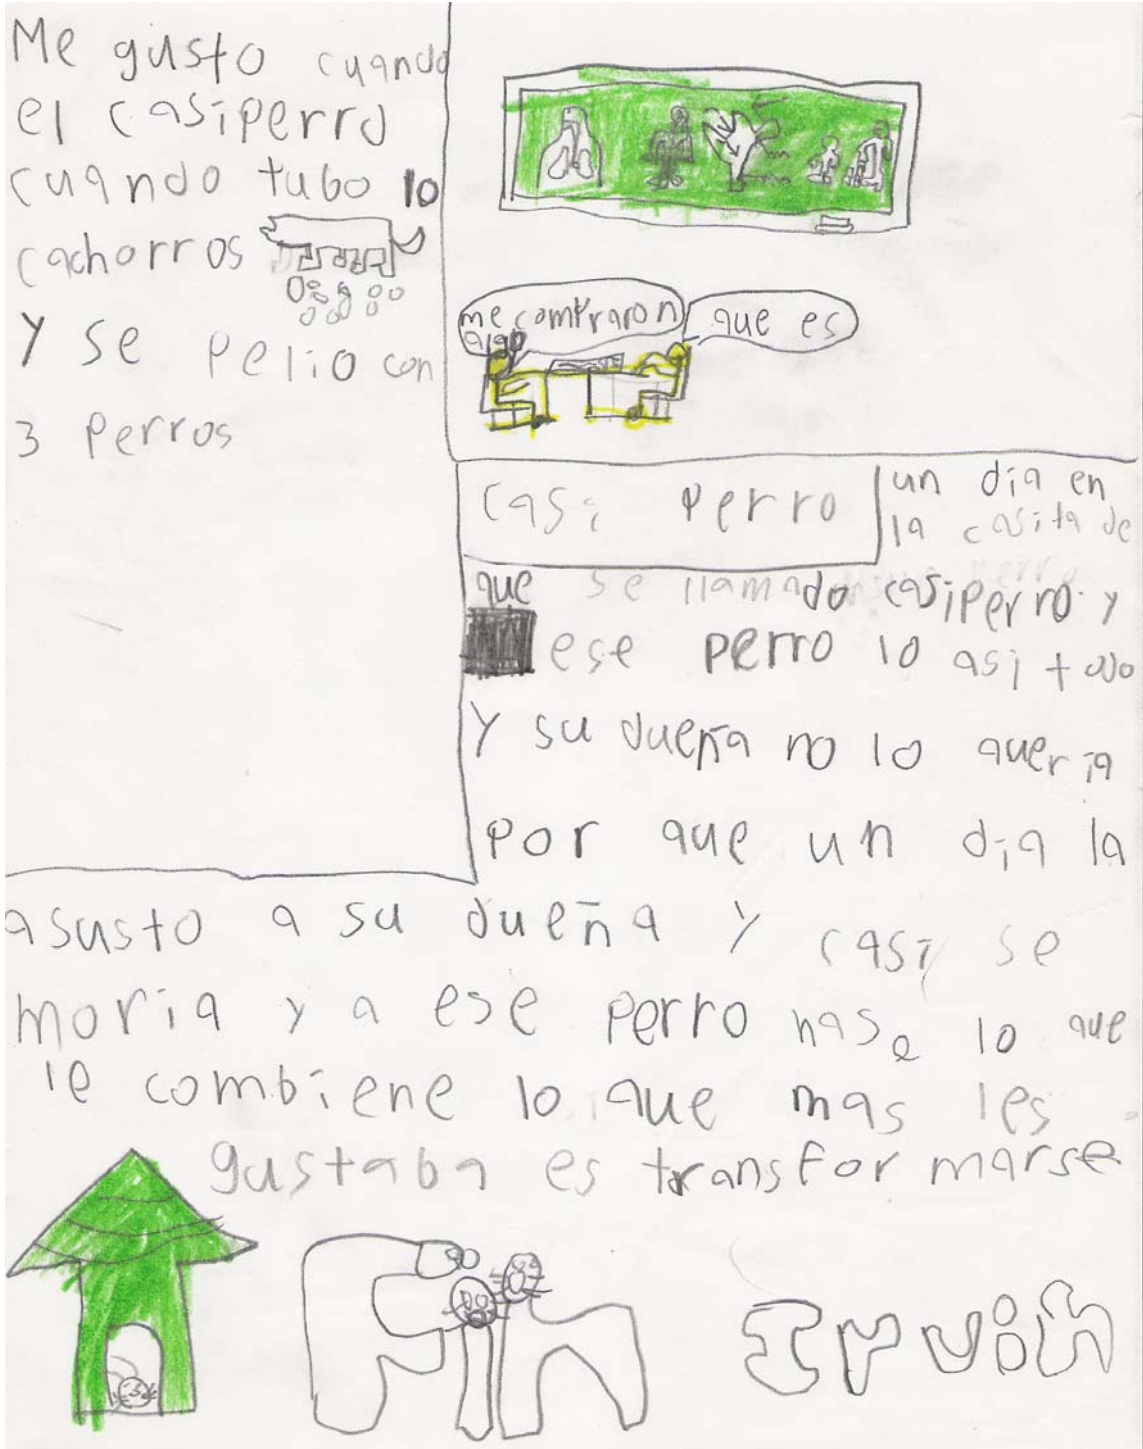 Me gusto cuando
el casiperro
cuando tubo 10
cachorros
Y se pelio con
3 perros
me compraron
algo
que es
casi perro
un dia en
la casita de
que se llamado casiperro y
ese perro lo asi todo
Y su dueña no lo queria
por que un dia la
asusto a su dueña y casi se
moria y a ese perro hase lo que
le combiene lo que mas les
gustaba es transformarse
Fin
Irvin